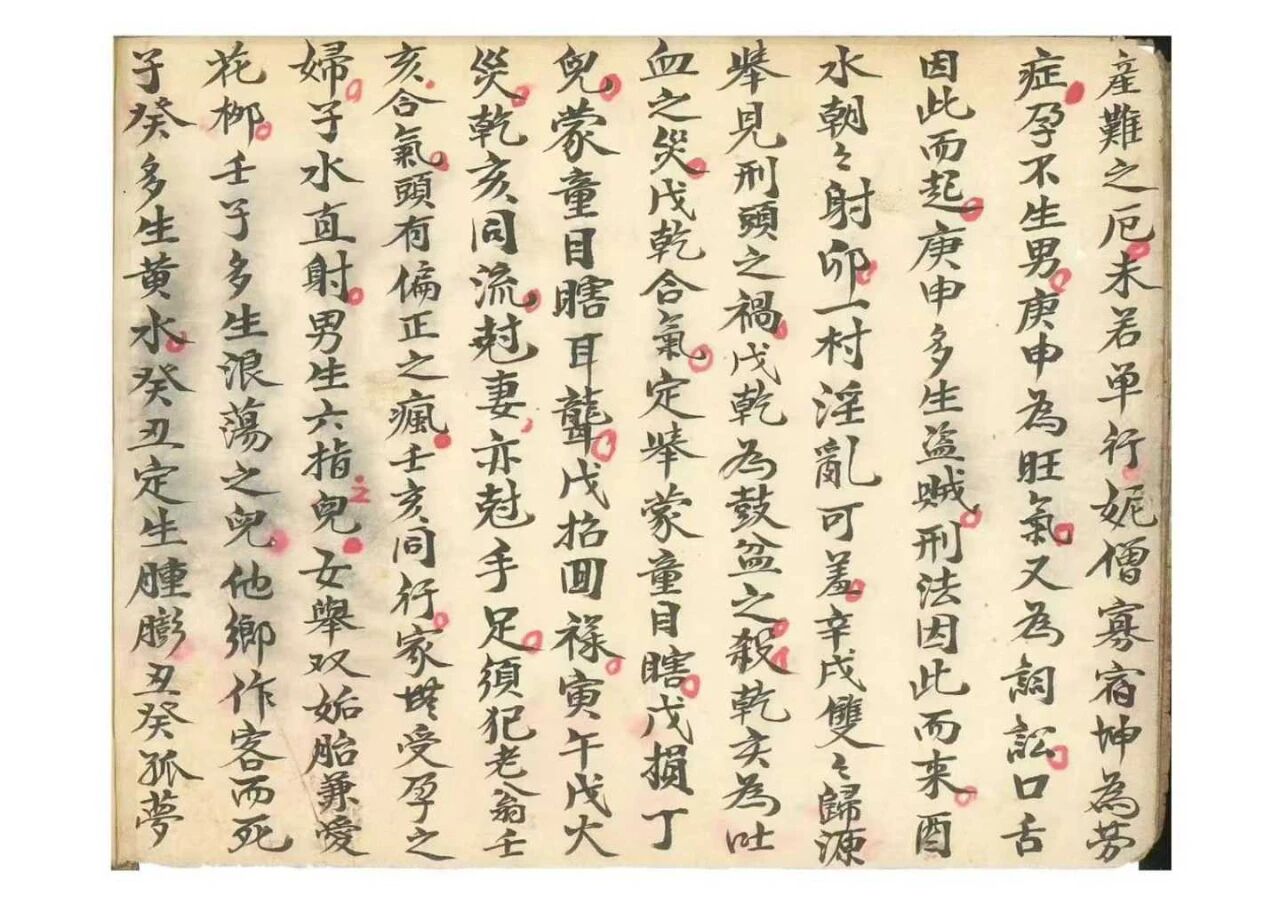 産難之厄未若单行妮僧寡宿坤為劳
症孕不生男庚申為旺氣又為詞訟口舌
因此而起庚申多生盜贼刑法因此而来酉
水朝〻射卯一村淫亂可羞辛戌雙〻歸源
举見刑頭之禍戌乾為鼓盆之殺乾亥為吐
血之災戌乾合氣定举蒙童目瞎戌損丁
兒蒙童目瞎耳聾戌招囬禄寅午戌火
災乾亥同流尅妻亦尅手足須犯老翁壬
亥合氣頭有偏正之瘋壬亥同行家受孕之
婦子水直射男生六指之兒女舉双妬胎兼愛
花柳壬子多生浪蕩之兒他鄉作客而死
子癸多生黄水癸丑定生腫膨丑癸孤夢